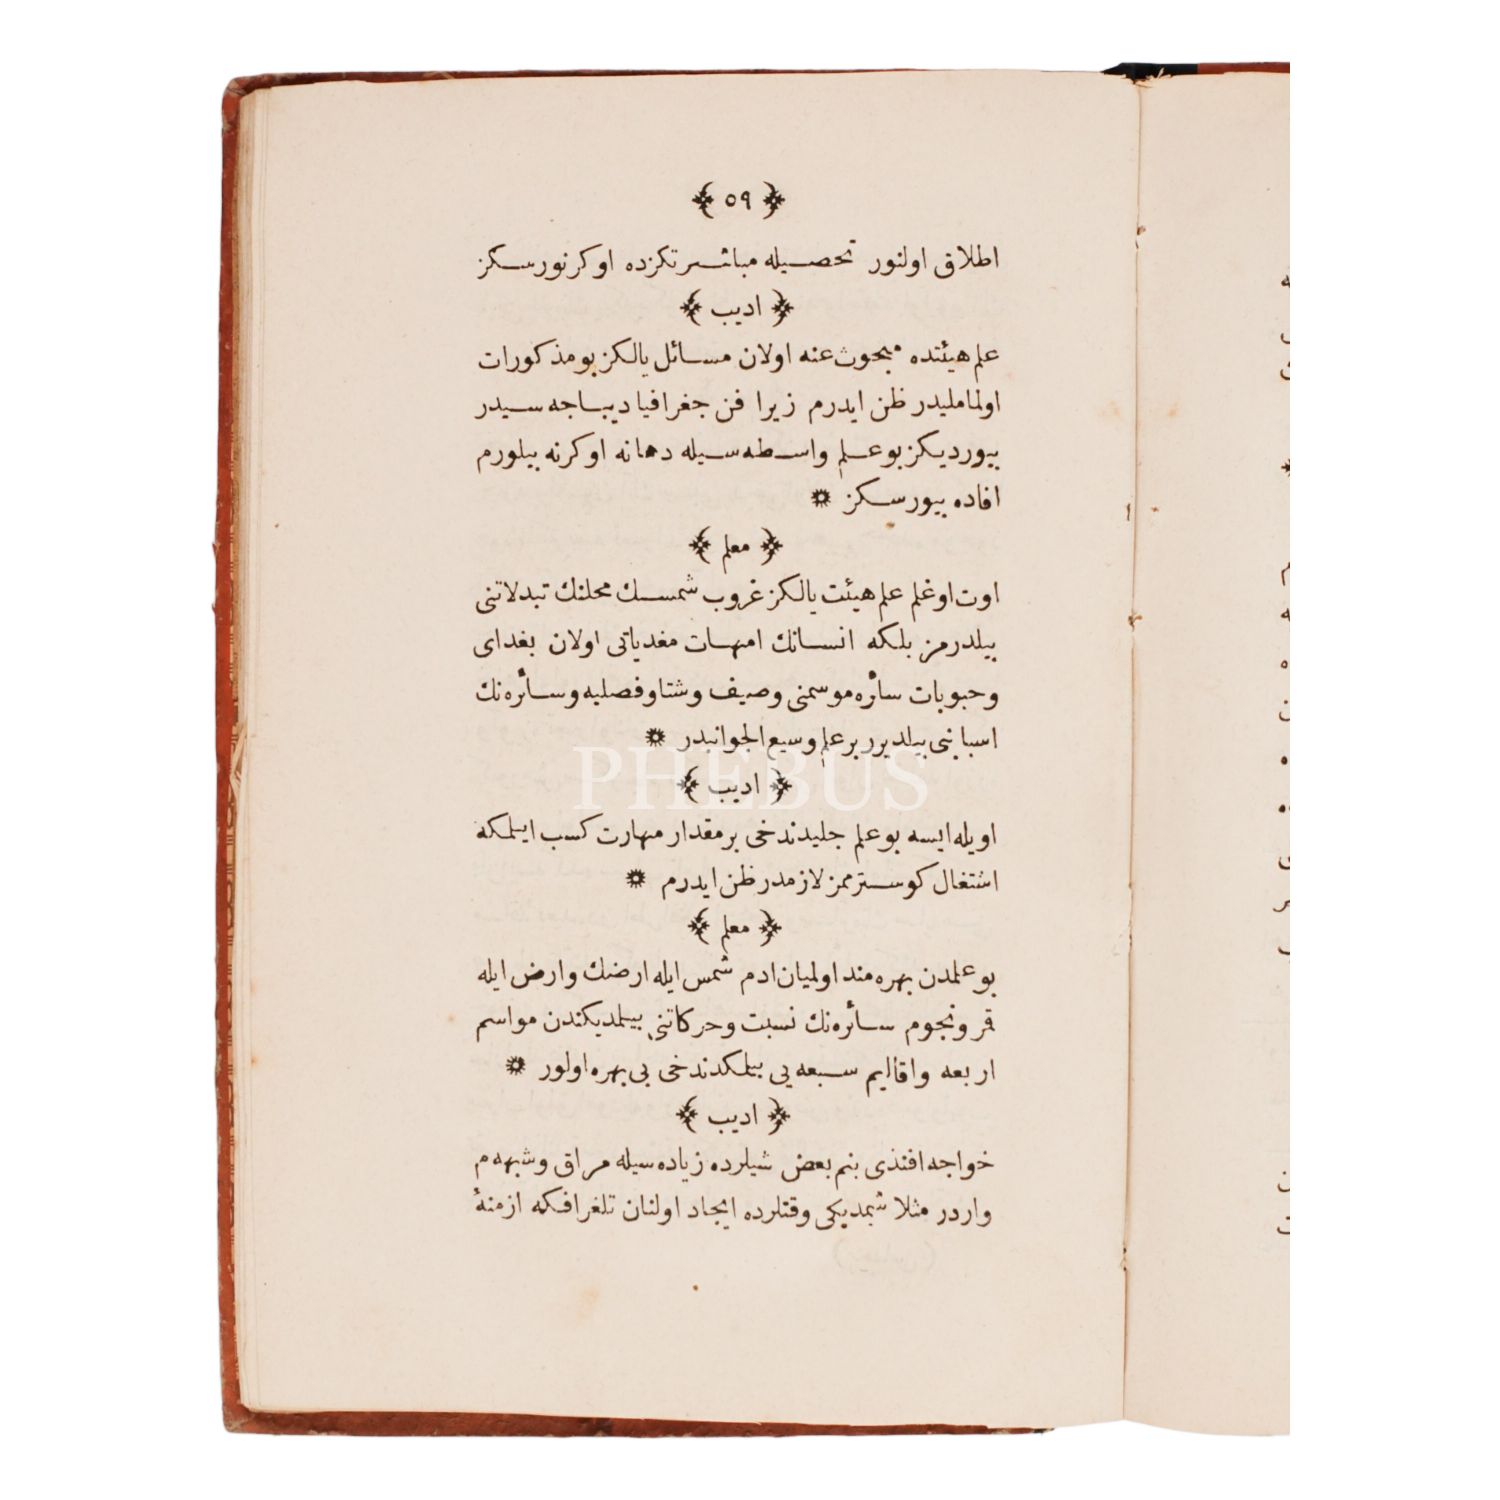 ﴿ ٥٩ ﴾
اطلاق اولنور تحصيله مباشرتكزده اوكرنورسكز
﴿ اديب ﴾
علم هيئتده مبحوث عنه اولان مسائل يالكز بو مذكورات
اولماملیدر ظن ايدرم زيرا فن جغرافيا ديباجه سيدر
بيورديكز بو علم واسطه سيله دها نه اوكرنه بيلورم
افاده بيورسكز ۞
﴿ معلم ﴾
اوت اوغلم علم هيئت يالكز غروب شمسك محلنك تبدلاتنى
بيلدرمز بلكه انسانك امهات مغدياتى اولان بغداى
وحبوبات سائره موسمنى وصيف وشتا وفصليه وسائره نك
اسبابنى بيلديرر بر علم وسيع الجوانبدر ۞
PHEBUS
﴿ اديب ﴾
اويله ايسه بو علم جليدندخى بر مقدار مهارت كسب ايلمكه
اشتغال كوسترممز لازمدر ظن ايدرم ۞
﴿ معلم ﴾
بو علمدن بهره مند اولميان ادم شمس ايله ارضك وارض ايله
قمر ونجوم سائره نك نسبت وحركاتنى بيلمديكندن مواسم
اربعه واقاليم سبعه يى بيلمكدندخى بى بهره اولور ۞
﴿ اديب ﴾
خواجه افندى بنم بعض شيلرده زياده سيله مراق وشبهه م
واردر مثلا شمديكى وقتلرده ايجاد اولنان تلغرافكه ازمنهٔ